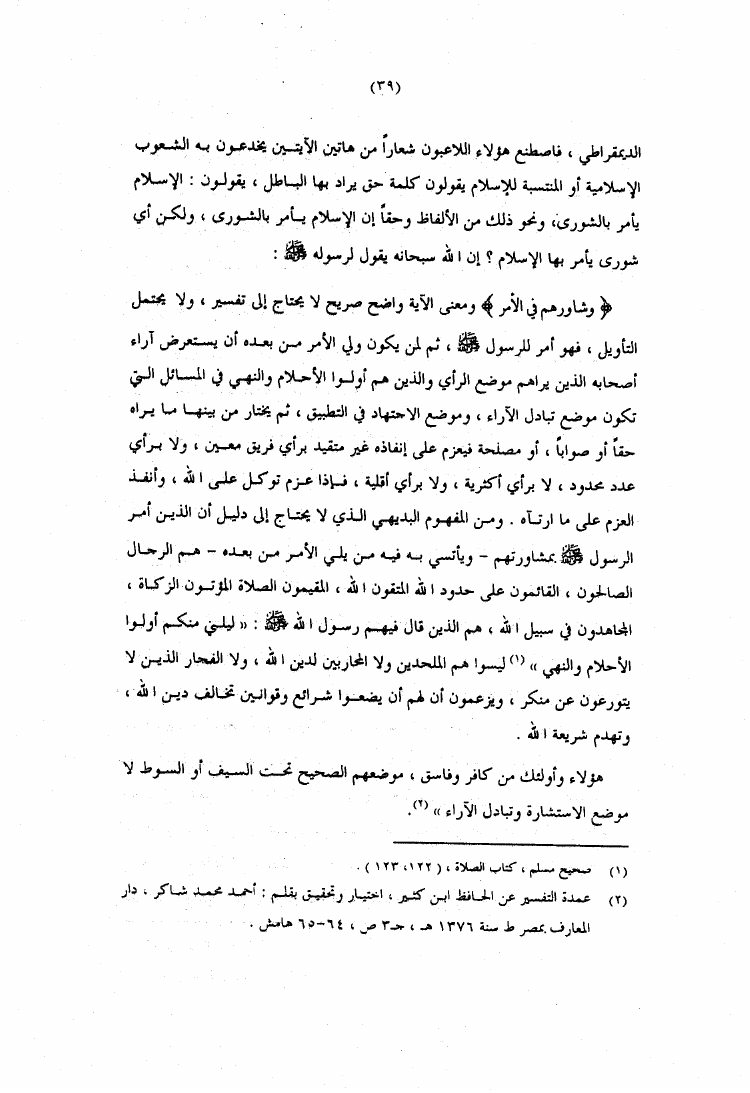 (٣٩)
الديمقراطي ، فاصطنع هؤلاء اللاعبون شعاراً من هاتين الآيتين يخدعون به الشعوب
الإسلامية أو المنتسبة للإسلام يقولون كلمة حق يراد بها الباطل ، يقولون : الإسلام
يأمر بالشورى، ونحو ذلك من الألفاظ وحقاً إن الإسلام يأمر بالشورى ، ولكن أي
شورى يأمر بها الإسلام ؟ إن الله سبحانه يقول لرسوله ﷺ :
﴿ وشاورهم في الأمر ﴾ ومعنى الآية واضح صريح لا يحتاج إلى تفسير ، ولا يحتمل
التأويل ، فهو أمر للرسول ﷺ ، ثم لمن يكون ولي الأمر من بعده أن يستعرض آراء
أصحابه الذين يراهم موضع الرأي والذين هم أولوا الأحلام والنهي في المسائل التي
تكون موضع تبادل الآراء ، وموضع الاجتهاد في التطبيق ، ثم يختار من بينها ما يراه
حقاً أو صواباً ، أو مصلحة فيعزم على إنفاذه غير متقيد برأي فريق معين ، ولا برأي
عدد محدود ، لا برأي أكثرية ، ولا برأي أقلية ، فإذا عزم توكل على الله ، وأنفذ
العزم على ما ارتآه . ومن المفهوم البديهي الذي لا يحتاج إلى دليل أن الذين أمر
الرسول ﷺ بمشاورتهم – ويأتسي به فيه من يلي الأمر من بعده – هم الرجال
الصالحون ، القائمون على حدود الله المتقون الله ، المقيمون الصلاة المؤتون الزكاة ،
المجاهدون في سبيل الله ، هم الذين قال فيهم رسول الله ﷺ : « ليلني منكم أولوا
الأحلام والنهي » (١) ليسوا هم الملحدين ولا المحاربين لدين الله ، ولا الفجار الذين لا
يتورعون عن منكر ، ويزعمون أن لهم أن يضعوا شرائع وقوانين تخالف دين الله ،
وتهدم شريعة الله .
هؤلاء وأولئك من كافر وفاسق ، موضعهم الصحيح تحت السيف أو السوط لا
موضع الاستشارة وتبادل الآراء » (٢).
(١) صحيح مسلم ، كتاب الصلاة ، ( ١٢٢، ١٢٣ ) .
(٢) عمدة التفسير عن الحافظ ابن كثير ، اختيار وتحقيق بقلم : أحمد محمد شاكر ، دار
المعارف بمصر ط سنة ١٣٧٦ هـ ، جـ٣ ص ، ٦٤–٦٥ هامش .